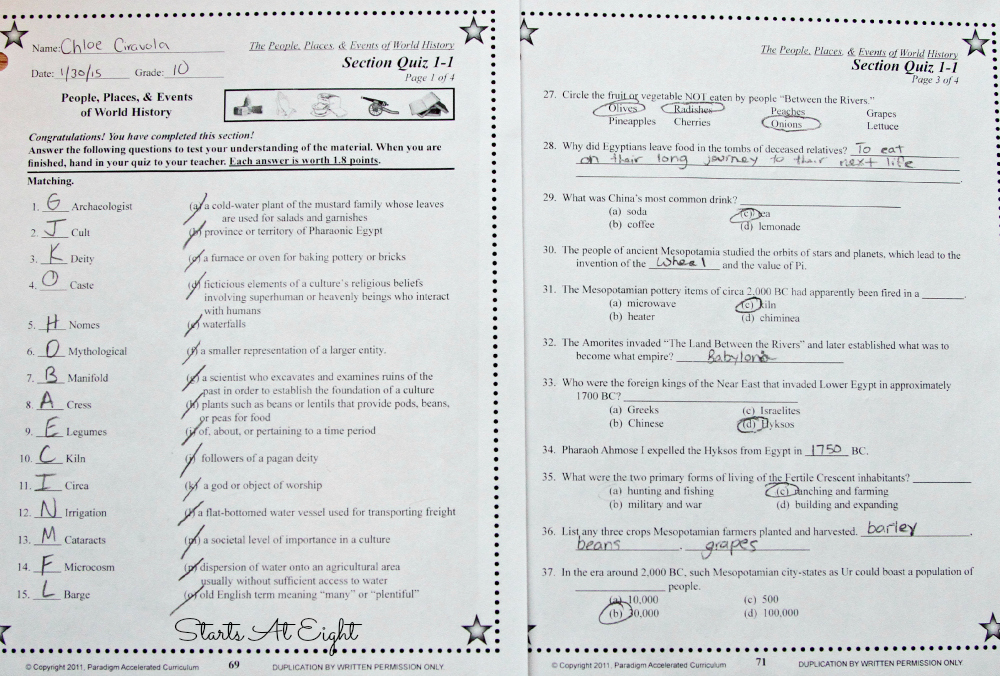 Name: Chloe Ciravola
Date: 1/30/15 Grade: 10
The People, Places, & Events of World History
Section Quiz 1-1
Page 1 of 4
People, Places, & Events
of World History
Congratulations! You have completed this section!
Answer the following questions to test your understanding of the material. When you are
finished, hand in your quiz to your teacher. Each answer is worth 1.8 points.
Matching.
1. G Archaeologist (a) a cold-water plant of the mustard family whose leaves
are used for salads and garnishes
2. J Cult (b) province or territory of Pharaonic Egypt
3. K Deity (c) a furnace or oven for baking pottery or bricks
4. O Caste (d) ficticious elements of a culture's religious beliefs
involving superhuman or heavenly beings who interact
with humans
5. H Nomes (e) waterfalls
6. D Mythological (f) a smaller representation of a larger entity.
7. B Manifold (g) a scientist who excavates and examines ruins of the
past in order to establish the foundation of a culture
8. A Cress (h) plants such as beans or lentils that provide pods, beans,
or peas for food
9. E Legumes (i) of, about, or pertaining to a time period
10. C Kiln (j) followers of a pagan deity
11. I Circa (k) a god or object of worship
12. N Irrigation (l) a flat-bottomed water vessel used for transporting freight
13. M Cataracts (m) a societal level of importance in a culture
14. F Microcosm (n) dispersion of water onto an agricultural area
usually without sufficient access to water
15. L Barge (o) old English term meaning "many" or "plentiful"
Starts At Eight
© Copyright 2011, Paradigm Accelerated Curriculum 69 DUPLICATION BY WRITTEN PERMISSION ONLY
The People, Places, & Events of World History
Section Quiz 1-1
Page 3 of 4
27. Circle the fruit or vegetable NOT eaten by people "Between the Rivers."
Olives Radishes Peaches Grapes
Pineapples Cherries Onions Lettuce
28. Why did Egyptians leave food in the tombs of deceased relatives? To eat
on their long journey to their next life
29. What was China's most common drink?
(a) soda (c) tea
(b) coffee (d) lemonade
30. The people of ancient Mesopotamia studied the orbits of stars and planets, which lead to the
invention of the wheel and the value of Pi.
31. The Mesopotamian pottery items of circa 2,000 BC had apparently been fired in a
(a) microwave (c) kiln
(b) heater (d) chiminea
32. The Amorites invaded "The Land Between the Rivers" and later established what was to
become what empire? Babylona
33. Who were the foreign kings of the Near East that invaded Lower Egypt in approximately
1700 BC?
(a) Greeks (c) Israelites
(b) Chinese (d) Hyksos
34. Pharaoh Ahmose I expelled the Hyksos from Egypt in 1750 BC.
35. What were the two primary forms of living of the Fertile Crescent inhabitants?
(a) hunting and fishing (c) ranching and farming
(b) military and war (d) building and expanding
36. List any three crops Mesopotamian farmers planted and harvested. barley,
beans, grapes
37. In the era around 2,000 BC, such Mesopotamian city-states as Ur could boast a population of
people.
(a) 10,000 (c) 500
(b) 30,000 (d) 100,000
© Copyright 2011, Paradigm Accelerated Curriculum 71 DUPLICATION BY WRITTEN PERMISSION ONLY